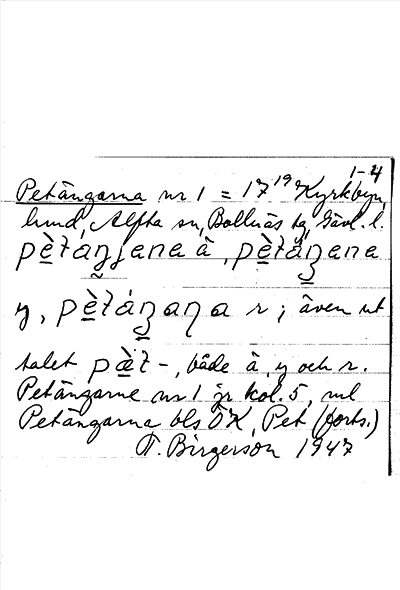 1-4
Petängarna nr 1 = 17¹⁹ Kyrkbyn,
lund, Alfta sn, Bollnäs tg, Gävl. l.
pètáŋjana ä, pètáŋana
y, pètáŋaŋa r; även ut
talet pæ̀t-, både ä, y och r.
Petängarne nr 1 jr kol. 5, ml
Petängarna bls ÖK, Pet (forts.)
T. Birgerson 1947